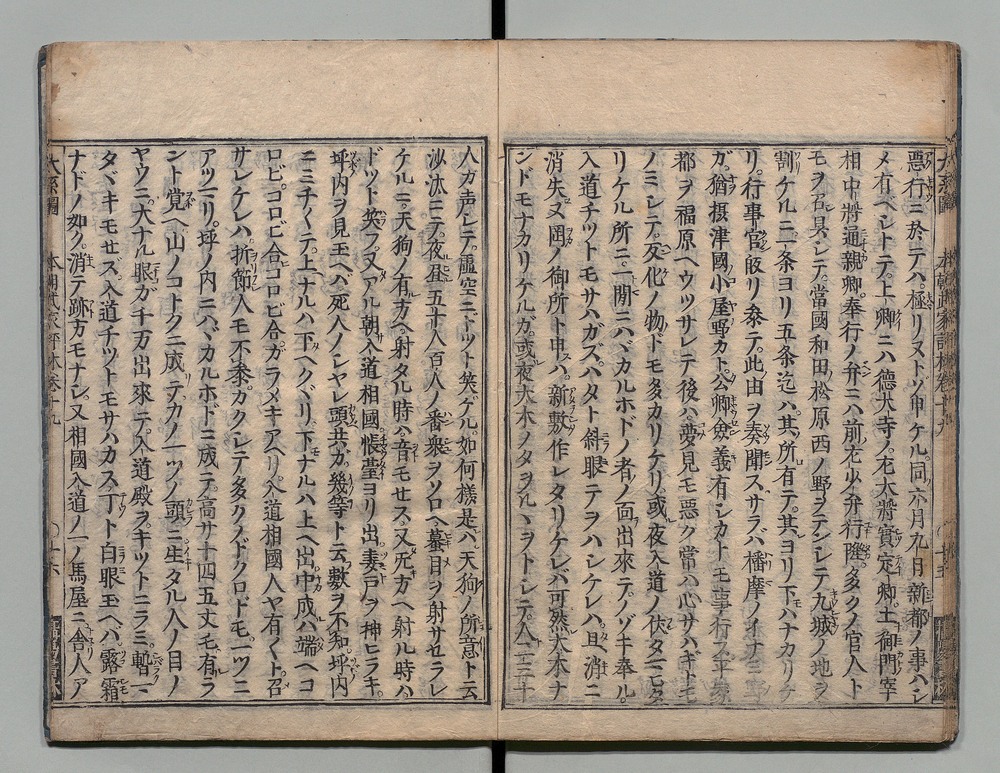 悪行ニ於テハ極リヌトソ申ケル同六月九日新都ノ事ハシ
メ有ベシトテ上卿ニハ徳大寺ノ左大将實定卿土御門宰
相中将通親卿奉行ノ弁ニハ前左少弁行隆多クノ官人ト
モヲ召具シテ當國和田ノ松原西ノ野ヲテンシテ九城ノ地ヲ
割ケルニ一条ヨリ五条迄ハ其所有テ其ヨリ下ハナカリケ
リ行事官皈リ参テ此由ヲ奏聞スサラバ播摩ノイナミ野
ガ猶摂津國小屋野カト公卿僉義有シカトモ事行ヘ
都ヲ福原ヘウツサレテ後ハ夢見モ悪ク常ハ心サハギトモ
ノミシテ変化ノ物ドモ多カリケリ或夜入道ノ伏タ
リケル所ニ一間ニハバカルホドノ者ノ面出來テノゾキ奉ル
入道チツトモサハガスハタト斜眼テヲハシケレハ且ハ消ニ
消失ヌ岡ノ御所ト申ハ新敷作レタリケレバ可然大木ナ
ンドモナカリケルガ或夜大木ノタヲルヽヲトシテ人二三十
人カ声シテ虚空ニドツト笑ゲル如何様是ハ天狗ノ所意ト云
沙汰ニテ夜昼五十人百人ノ番衆ヲソロヘ蟇目ヲ射サセラレ
ケルニ天狗ノ有方ヘ射タル時ハ音モセス又死方ヘ射ル時ハ
ドツト笑フ又アル朝入道相國帳臺ヨリ出妻戸ヲ押ヒラキ
坪内ヲ見玉ヘバ死人ノシヤレ頭共ガ幾等ト云數ヲ不知坪内
ニミチ〳〵テ上ナルハ下ヘクベリ下ナルハ上ヘ出中成ハ端ヘコ
ロビコロビ合コロビ合ガラメキアヘリ入道相國人ヤ有〳〵ト召
サレケレハ折節人モ不参カクシテ多クノドクロドモ一ツニ
アツマリ坪ノ内ニハバカルホドニ成テ高サ十四五丈モ有ラ
ント覚ヘ山ノコトクニ成テカノ一ツノ頭ニ生タル人ノ目ノ
ヤウニ大ナル眼ガ千万出來テ入道殿ヲキツトニラミ暫ハマ
タヾキモセズ入道チツトモサハカス丁ト白眼玉ヘハ露霜
ナドノ如ク消テ跡方モナシ又相國入道ノ一ノ馬屋ニ舎人ア